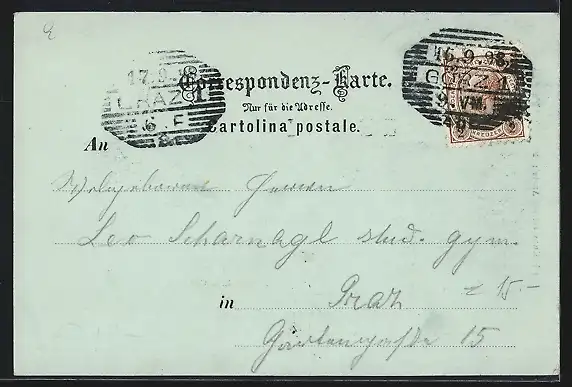 16.9.98
GÖRZ 1
17.9.98
GRAZ 1
6.F
Correspondenz-Karte.
Nur für die Adresse.
Cartolina postale.
An
Wohlgeboren Herrn
Leo Scharnagl stud. gym.
in Graz
15.-
15